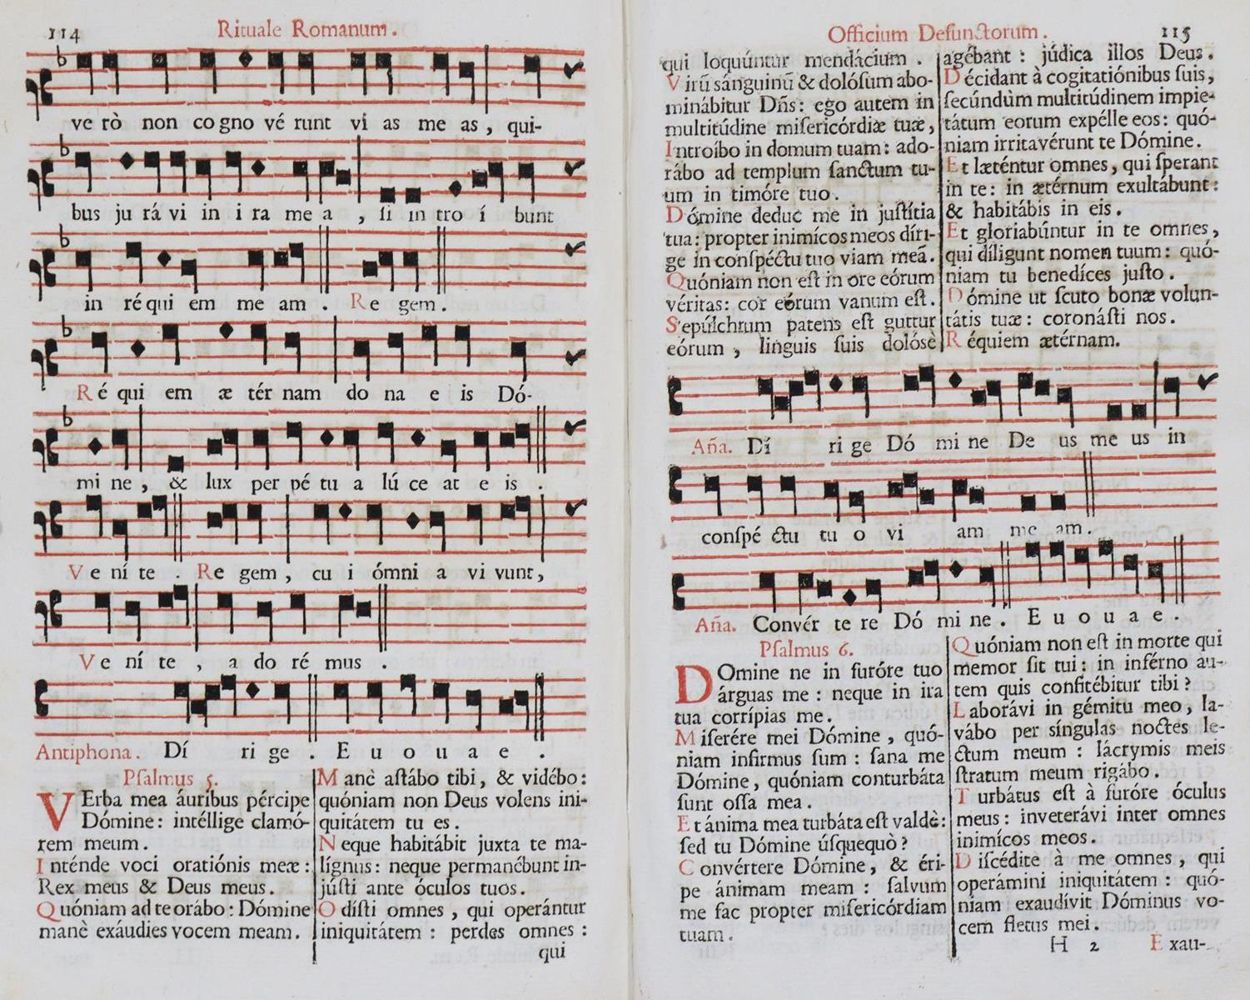 114 Rituale Romanum.
ve rò non co gno vé runt vi as me as, qui-
bus ju rá vi in i ra me a, si in tro í bunt
in ré qui em me am. Re gem.
Ré qui em æ tér nam do na e is Dó-
mi ne, & lux per pé tu a lú ce at e is.
Ve ní te. Re gem, cu i ómni a vi vunt,
Ve ní te, a do ré mus.
Antiphona. Dí ri ge. E u o u a e.
Psalmus 5.
VErba mea áuribus pércipe
Dómine: intéllige clamó-
rem meum.
Inténde voci oratiónis meæ:
Rex meus & Deus meus.
Quóniam ad te orábo: Dómine
manè exáudies vocem meam.
Manè astábo tibi, & vidébo:
quóniam non Deus volens ini-
quitátem tu es.
Neque habitábit juxta te ma-
lígnus: neque permanébunt in-
jústi ante óculos tuos.
Odísti omnes, qui operántur
iniquitátem: perdes omnes:
qui
Officium Defunctorum. 115
qui loquúntur mendácium.
Virũ sánguinũ & dolósum abo-
minábitur Dñs: ego autem in
multitúdine misericórdiæ tuæ,
Introíbo in domum tuam: ado-
rábo ad templum sanctum tu-
um in timóre tuo.
Dómine deduc me in justítia
tua: propter inimícos meos díri-
ge in conspéctu tuo viam meam.
Quóniam non est in ore eórum
véritas: cor eórum vanum est.
Sepúlchrum patens est guttur
eórum, linguis suis dolósè
agébant: júdica illos Deus.
Décidant à cogitatiónibus suis,
secúndùm multitúdinem impie-
tátum eorum expélle eos: quó-
niam irritavérunt te Dómine.
Et læténtur omnes, qui sperant
in te: in ætérnum exultábunt:
& habitábis in eis.
Et gloriabúntur in te omnes,
qui díligunt nomen tuum: quó-
niam tu benedíces justo.
Dómine ut scuto bonæ volun-
tátis tuæ: coronásti nos.
Réquiem ætérnam.
Aña. Dí ri ge Dó mi ne De us me us in
conspé ctu tu o vi am me am.
Aña. Convér te re Dó mi ne. E u o u a e.
Psalmus 6.
DOmine ne in furóre tuo
árguas me: neque in ira
tua corrípias me.
Miserére mei Dómine, quó-
niam infirmus sum: sana me
Dómine, quóniam conturbáta
sunt ossa mea.
Et ánima mea turbáta est valdè:
sed tu Dómine úsquequò?
Convértere Dómine, & éri-
pe ánimam meam: salvum
me fac propter misericórdiam
tuam.
Quóniam non est in morte qui
memor sit tui: in inférno au-
tem quis confitébitur tibi?
Laborávi in gémitu meo, la-
vábo per síngulas noctes le-
ctum meum: lácrymis meis
stratum meum rigábo.
Turbátus est à furóre óculus
meus: inveterávi inter omnes
inimícos meos.
Discédite à me omnes, qui
operámini iniquitátem: quó-
niam exaudívit Dóminus vo-
cem fletus mei.
H 2 Exau-